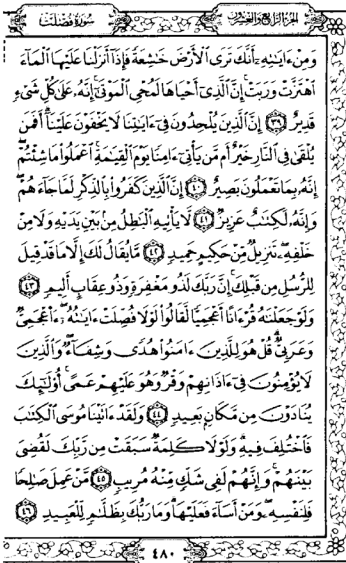 سورة فصلت الجزء الرابع والعشرون
وَمِنْ ءَايَٰتِهِۦٓ أَنَّكَ تَرَى ٱلْأَرْضَ خَٰشِعَةً فَإِذَآ أَنزَلْنَا عَلَيْهَا ٱلْمَآءَ
ٱهْتَزَّتْ وَرَبَتْ إِنَّ ٱلَّذِىٓ أَحْيَاهَا لَمُحْىِ ٱلْمَوْتَىٰٓ إِنَّهُۥ عَلَىٰ كُلِّ شَىْءٍ
قَدِيرٌ ٣٩ إِنَّ ٱلَّذِينَ يُلْحِدُونَ فِىٓ ءَايَٰتِنَا لَا يَخْفَوْنَ عَلَيْنَآ أَفَمَن
يُلْقَىٰ فِى ٱلنَّارِ خَيْرٌ أَم مَّن يَأْتِىٓ ءَامِنًا يَوْمَ ٱلْقِيَٰمَةِ ٱعْمَلُوا۟ مَا شِئْتُمْ
إِنَّهُۥ بِمَا تَعْمَلُونَ بَصِيرٌ ٤٠ إِنَّ ٱلَّذِينَ كَفَرُوا۟ بِٱلذِّكْرِ لَمَّا جَآءَهُمْ
وَإِنَّهُۥ لَكِتَٰبٌ عَزِيزٌ ٤١ لَّا يَأْتِيهِ ٱلْبَٰطِلُ مِنۢ بَيْنِ يَدَيْهِ وَلَا مِنْ
خَلْفِهِۦ تَنزِيلٌ مِّنْ حَكِيمٍ حَمِيدٍ ٤٢ مَّا يُقَالُ لَكَ إِلَّا مَا قَدْ قِيلَ
لِلرُّسُلِ مِن قَبْلِكَ إِنَّ رَبَّكَ لَذُو مَغْفِرَةٍ وَذُو عِقَابٍ أَلِيمٍ ٤٣
وَلَوْ جَعَلْنَٰهُ قُرْءَانًا أَعْجَمِيًّا لَّقَالُوا۟ لَوْلَا فُصِّلَتْ ءَايَٰتُهُۥٓ ءَا۬عْجَمِىٌّ
وَعَرَبِىٌّ قُلْ هُوَ لِلَّذِينَ ءَامَنُوا۟ هُدًى وَشِفَآءٌ وَٱلَّذِينَ
لَا يُؤْمِنُونَ فِىٓ ءَاذَانِهِمْ وَقْرٌ وَهُوَ عَلَيْهِمْ عَمًى أُو۟لَٰٓئِكَ
يُنَادَوْنَ مِن مَّكَانٍۭ بَعِيدٍ ٤٤ وَلَقَدْ ءَاتَيْنَا مُوسَى ٱلْكِتَٰبَ
فَٱخْتُلِفَ فِيهِ وَلَوْلَا كَلِمَةٌ سَبَقَتْ مِن رَّبِّكَ لَقُضِىَ
بَيْنَهُمْ وَإِنَّهُمْ لَفِى شَكٍّ مِّنْهُ مُرِيبٍ ٤٥ مَّنْ عَمِلَ صَٰلِحًا
فَلِنَفْسِهِۦ وَمَنْ أَسَآءَ فَعَلَيْهَا وَمَا رَبُّكَ بِظَلَّٰمٍ لِّلْعَبِيدِ ٤٦
٤٨٠